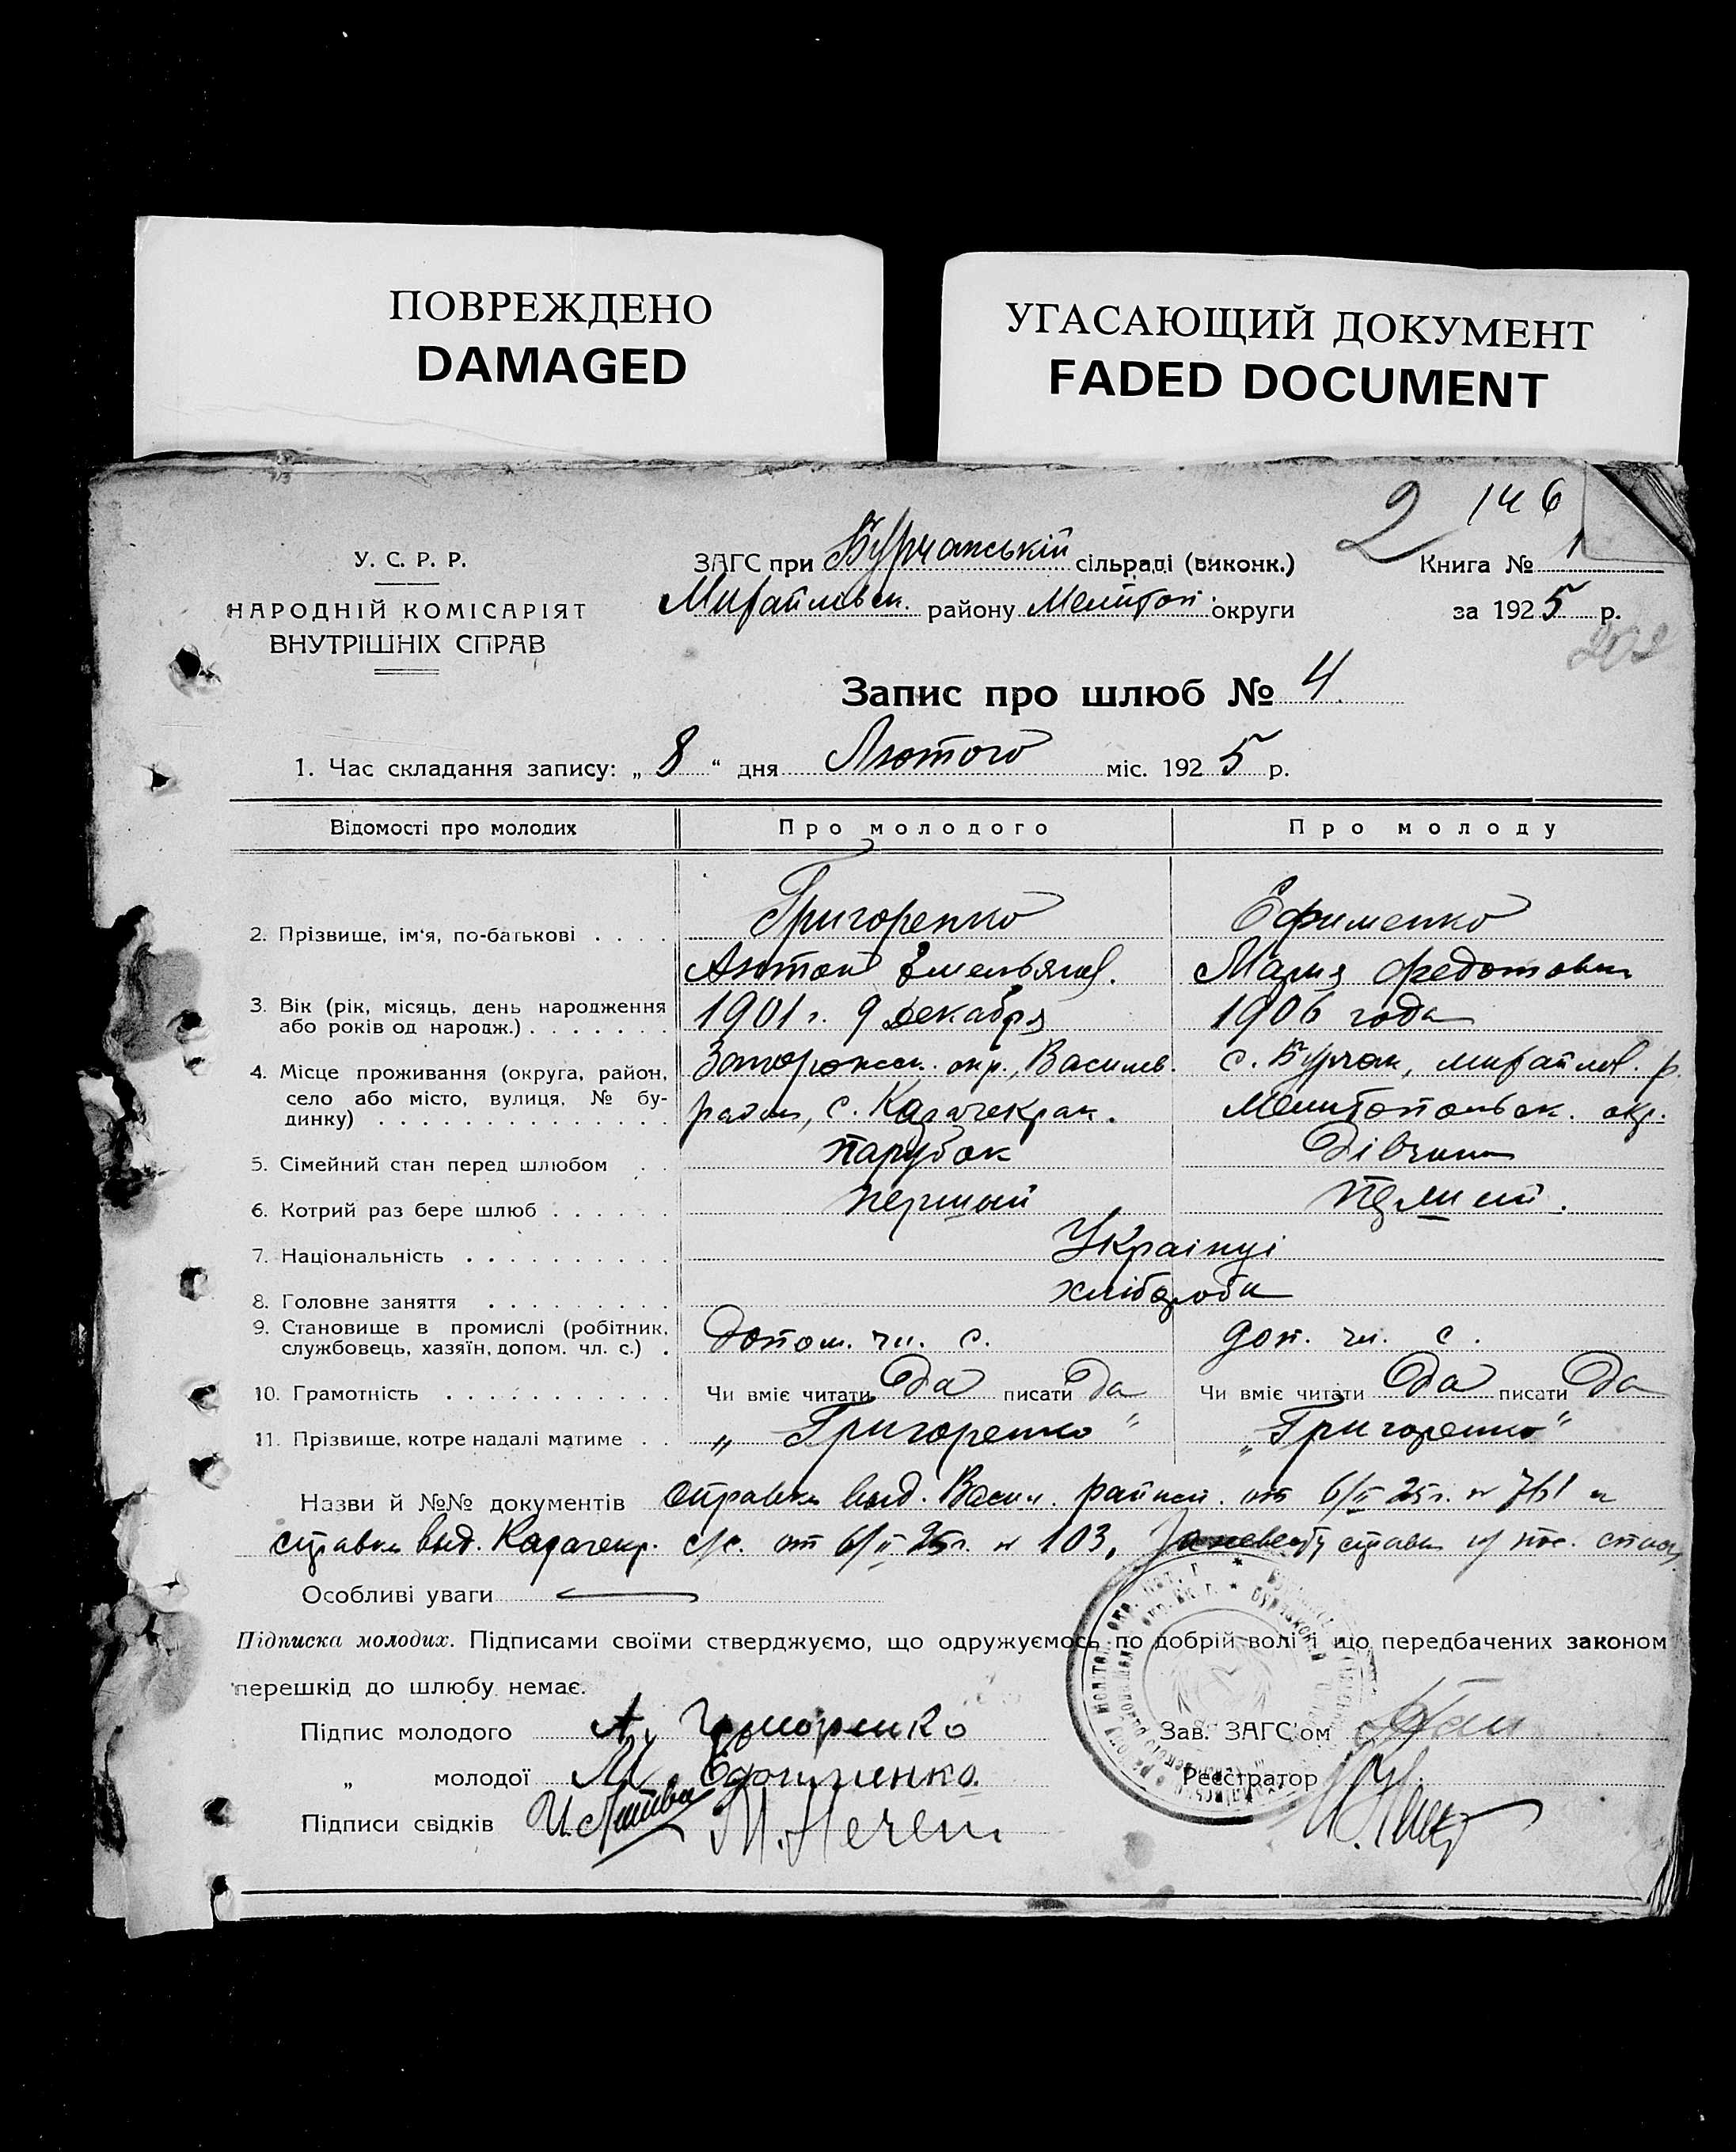 ПОВРЕЖДЕНО
DAMAGED
УГАСАЮЩИЙ ДОКУМЕНТ
FADED DOCUMENT
2 146
У. С. Р. Р.
НАРОДНІЙ КОМІСАРІЯТ
ВНУТРІШНІХ СПРАВ
ЗАГС при Бурчанській сільраді (виконк.)
Михайловск. району Мелитоп. округи
Книга № 1
за 1925 р.
202
Запис про шлюб № 4.
1. Час складання запису: „ 8 “ дня Лютого міс. 1925 р.
Відомості про молодих Про молодого Про молоду
2. Прізвище, ім‘я, по-батькові . . . . Григоренко Ефименко
Антон Емельянов. Мария Федотовна
3. Вік (рік, місяць, день народження
або років од народж.) . . . . . . . 1901 г. 9 декабря 1906 года
4. Місце проживання (округа, район,
село або місто, вулиця, № бу-
динку) . . . . . . . . . . . . . .
Запорожск. окр., Василев. с. Бурчак, михайлов. р.
район, с. Карачекрак. Мелитопольск. окр.
5. Сімейний стан перед шлюбом . . парубок Дівчина
6. Котрий раз бере шлюб . . . . . . перший перший.
7. Національність . . . . . . . . . . Українці
8. Головне заняття . . . . . . . . . хлібороби
9. Становище в промислі (робітник,
службовець, хазяїн, допом. чл. с.) . допом. чл. с. доп. чл. с.
10. Грамотність . . . . . . . . . . . Чи вміє читати да писати да Чи вміє читати да писати да
11. Прізвище, котре надалі матиме . . „ Григоренко “ „Григоренко“
Назви й №№ документів справка выд. Васил. райисп. от 6/II 25 г. № 761 и
справка выд. Карачекр. с/с. от 6/II 25 г. № 103, справка
Особливі уваги
Підписка молодих. Підписами своїми стверджуємо, що одружуємось по добрій волі і що передбачених законом
перешкід до шлюбу немає.
Підпис молодого А. Григоренко
Зав. ЗАГС'ом
„ молодої М. Ефименко
Реєстратор
Підписи свідків И. Литва